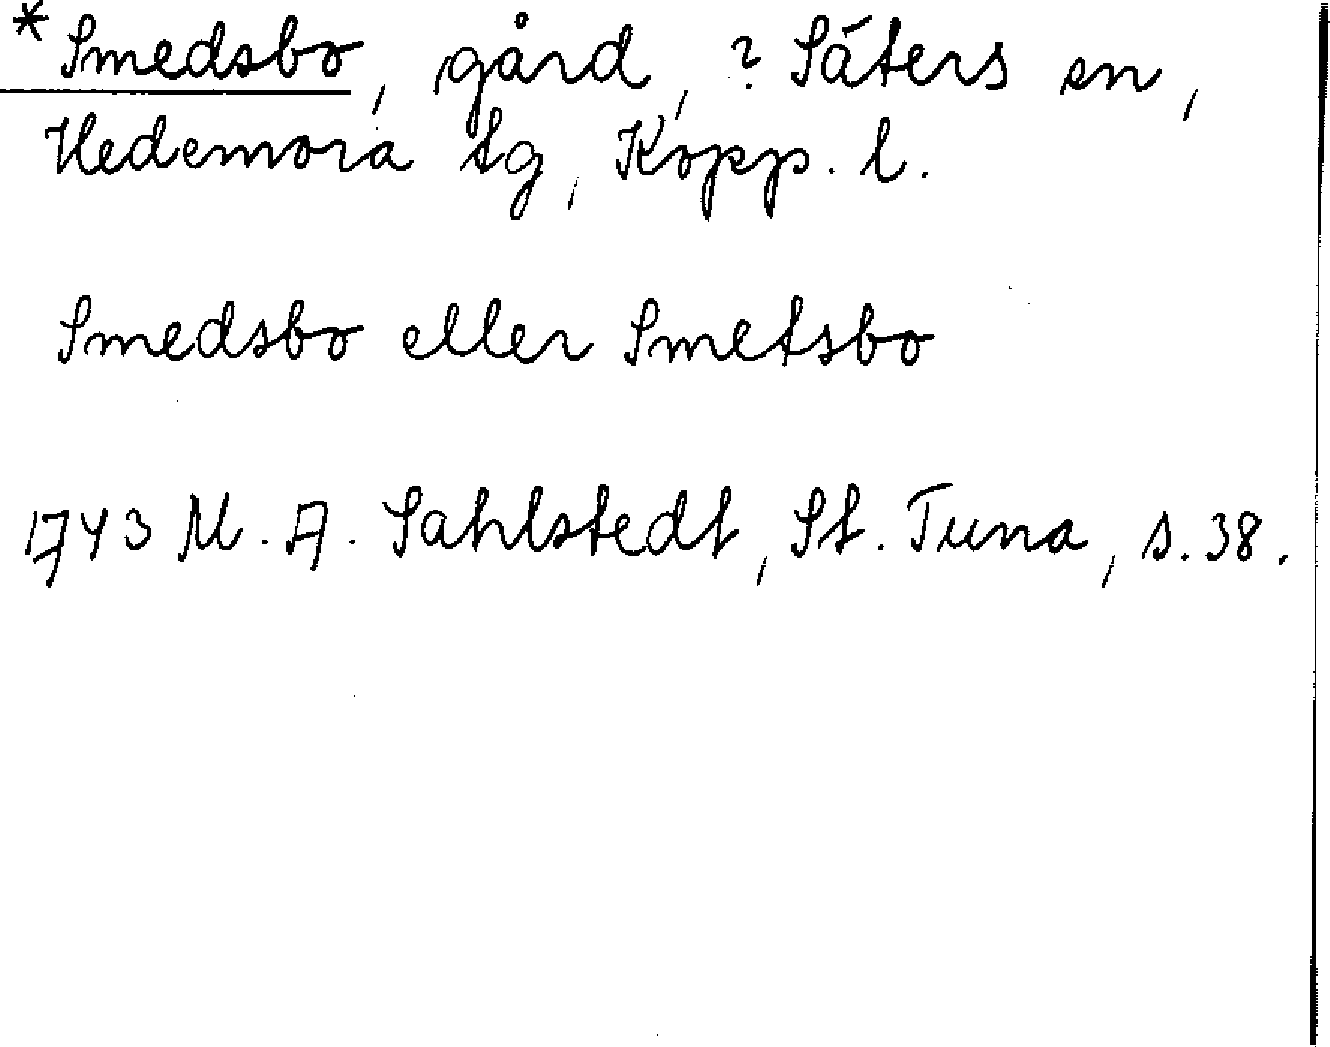 *Smedsbo, gård, ? Säters sn,
Hedemora tg, Kopp. l.
Smedsbo eller Smetsbo
1743 M. A. Sahlstedt, St. Tuna, s. 38.